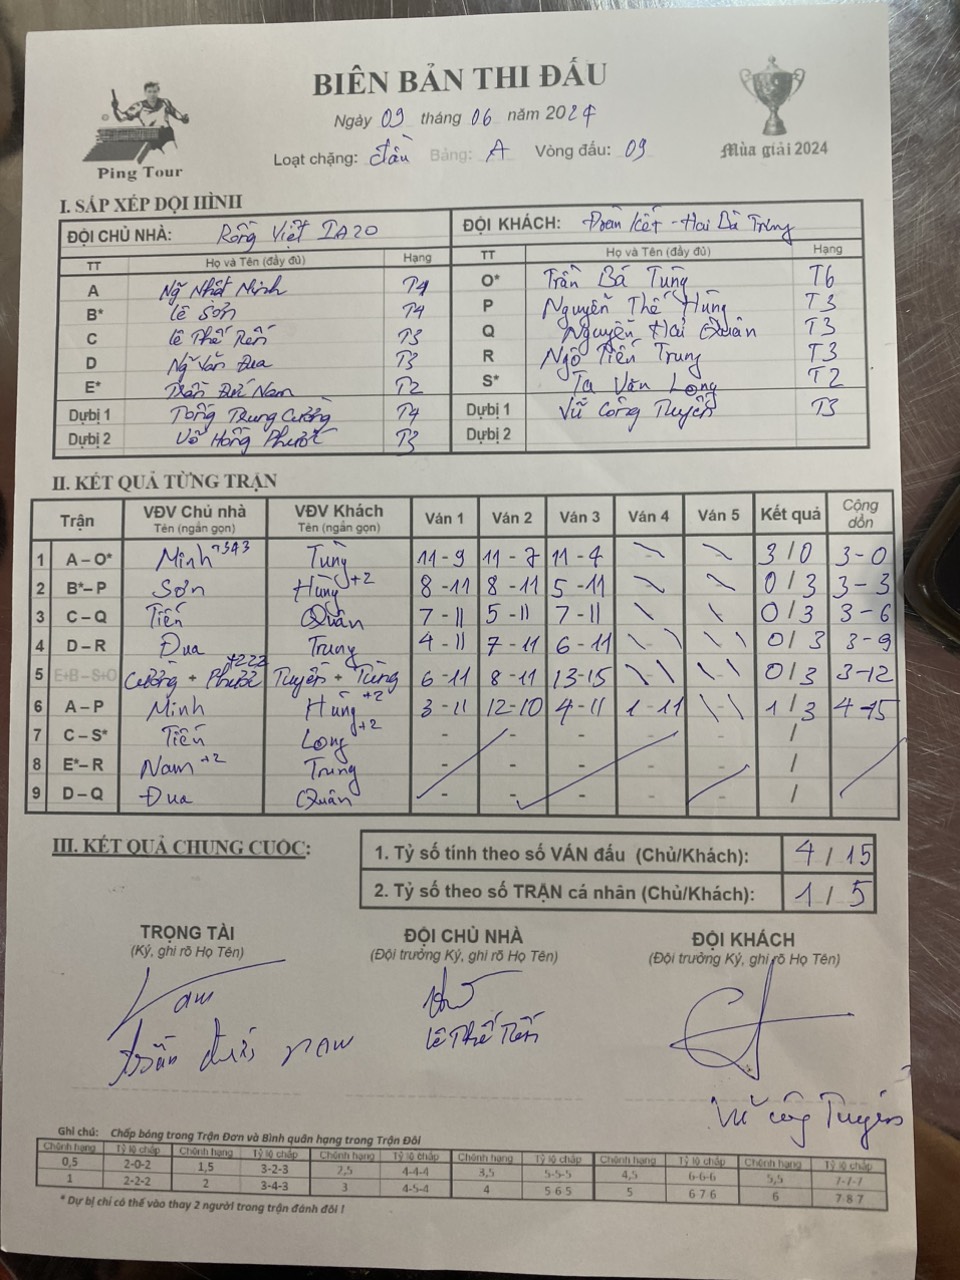 BIÊN BẢN THI ĐẤU
Ngày 09 tháng 06 năm 2024
Loạt chặng: đầu Bảng: A Vòng đấu: 09
Ping Tour
Mùa giải 2024
I. SẮP XẾP ĐỘI HÌNH
ĐỘI CHỦ NHÀ: Rồng Việt IA20 ĐỘI KHÁCH: Đoàn Kết - Hai Bà Trưng
TT Họ và Tên (đầy đủ) Hạng TT Họ và Tên (đầy đủ) Hạng
A Ng̃ Nhật Minh T4 O* Trần Bá Tùng T6
B* Lê Sơn T4 P Nguyễn Thế Hùng T3
C Lê Thế Tiến T3 Q Nguyễn Hai Quân T3
D Ng̃ Văn Đua T3 R Ngô Tiến Trung T3
E* Trần Đức Nam T2 S* Tạ Văn Long T2
Dựbị 1 Tống Trung Cường T4 Dựbị 1 Vũ Công Tuyên T3
Dựbị 2 Võ Hồng Phước T3 Dựbị 2
II. KẾT QUẢ TỪNG TRẬN
Trận VĐV Chủ nhà Tên (ngắn gọn) VĐV Khách Tên (ngắn gọn) Ván 1 Ván 2 Ván 3 Ván 4 Ván 5 Kết quả Cộng dồn
1 A – O* Minh Tùng 11 - 9 11 - 7 11 - 4 3 / 0 3-0
2 B*– P Sơn Hùng +2 8 - 11 8 - 11 5 - 11 0 / 3 3-3
3 C – Q Tiến Quân 7 - 11 5 - 11 7 - 11 0 / 3 3-6
4 D – R Đua Trung 4 - 11 7 - 11 6 - 11 0 / 3 3-9
5 E+B – S+O Cường + Phước +222 Tuyên + Tùng 6 - 11 8 - 11 13 - 15 0 / 3 3-12
6 A – P Minh Hùng +2 3 - 11 12 - 10 4 - 11 1 - 11 1 / 3 4-15
7 C – S* Tiến Long +2 - - - - - /
8 E*– R Nam +2 Trung - - - - - /
9 D – Q Đua Quân - - - - - /
III. KẾT QUẢ CHUNG CUỘC:
1. Tỷ số tính theo số VÁN đấu (Chủ/Khách): 4 / 15
2. Tỷ số theo số TRẬN cá nhân (Chủ/Khách): 1 / 5
TRỌNG TÀI ĐỘI CHỦ NHÀ ĐỘI KHÁCH
(Ký, ghi rõ Họ Tên) (Đội trưởng Ký, ghi rõ Họ Tên) (Đội trưởng Ký, ghi rõ Họ Tên)
Trần Đức Nam Lê Thế Tiến Vũ Công Tuyên
Ghi chú: Chấp bóng trong Trận Đơn và Bình quân hạng trong Trận Đôi
Chênh hạng Tỷ lệ chấp Chênh hạng Tỷ lệ chấp Chênh hạng Tỷ lệ chấp Chênh hạng Tỷ lệ chấp Chênh hạng Tỷ lệ chấp Chênh hạng Tỷ lệ chấp
0,5 2-0-2 1,5 3-2-3 2,5 4-4-4 3,5 5-5-5 4,5 6-6-6 5,5 7-7-7
1 2-2-2 2 3-4-3 3 4-5-4 4 5 6 5 5 6 7 6 6 7 8 7
* Dự bị chỉ có thể vào thay 2 người trong trận đánh đôi !